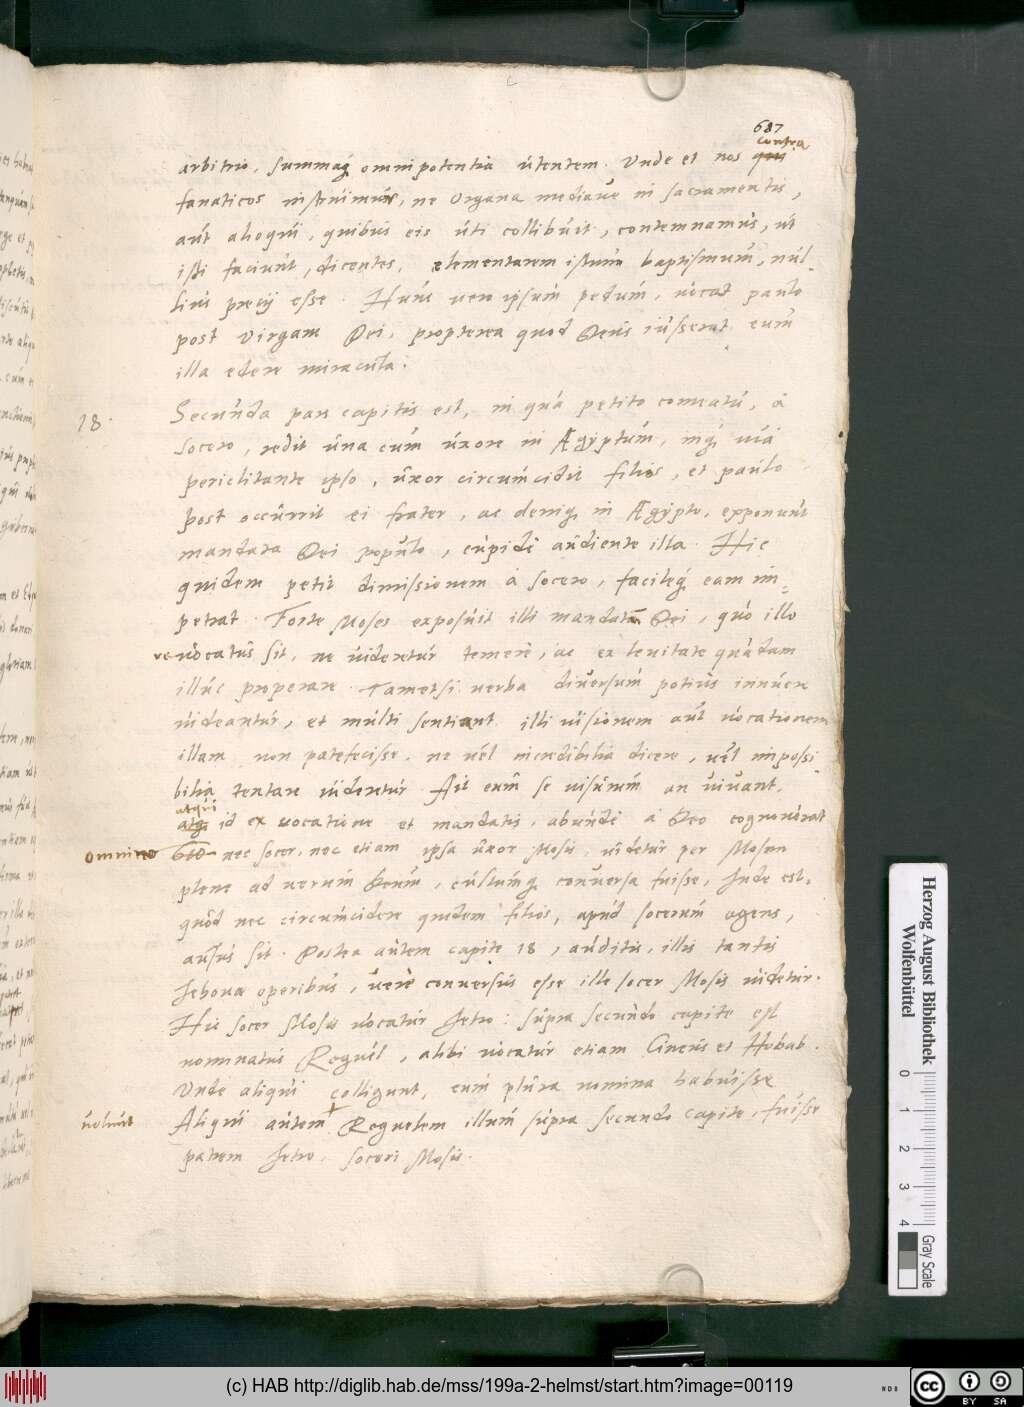 687
contra
arbitrio, summaq́ omnipotentia utentem. Unde et nos qui
fanaticos instruimur, ne organa mediave in sacramentis,
aut alioqui, quibus eis uti collibuit, contemnamus, ut
isti faciunt, dicentes, elementarem istum baptismum, nul-
lius precij esse. Hunc vero ipsum pedum, vocat paulo
post virgam Dei, propterea quod Deus iusserat eum
illa edere miracula.
18. Secunda pars capitis est, in qua petito comeatu, a
socero, redit una cum uxore in Ægyptum, inq́ via
periclitante ipso, uxor circumcidit filios, et paulo
post occurrit ei frater, ac deniq, in Ægypto, exponunt
mandata Dei populo, cupide audiente illa. Hic
quidem petit dimissionem a socero, facileq́ eam im-
petrat. Forte Moses exposuit illi mandatum Dei, quo illo
revocatus sit, ne videretur temere, ac ex levitate quadam
illuc properare. Tametsi verba diversum potius innuere
videantur, et multi sentiant illi visionem aut vocationem
illam non patefecisse, ne vel incredibilia dicere, vel impossi
bilia tentare videretur. Ait enim se visurum an vivant,
atqui
atq id ex vocatione et mandatis, abunde a Deo cognoverat
omnino nec socer, nec etiam ipsa uxor Mosis, videtur per Mosen
plene ad verum Deum, cultumq conversa fuisse, Inde est,
quod nec circumcidere quidem filios, apud socerum agens,
ausus sit. Postea autem capite 18, auditis, illis tantis
Jehovæ operibus, vere conversus esse ille socer Mosis videtur.
Hic socer Mosis vocatur Jetro: supra secundo capite est
nominatus Reguel, alibi vocatur etiam Cineus et Hobab.
Unde aliqui colligunt, eum plura nomina habuisse
volunt
Aliqui autem Reguelem illum supra secundo capite, fuisse
patrem Jetro, soceri Mosis.
Herzog August Bibliothek
Wolfenbüttel
0 1 2 3 4
Gray Scale
(c) HAB http://diglib.hab.de/mss/199a-2-helmst/start.htm?image=00119
cc BY SA